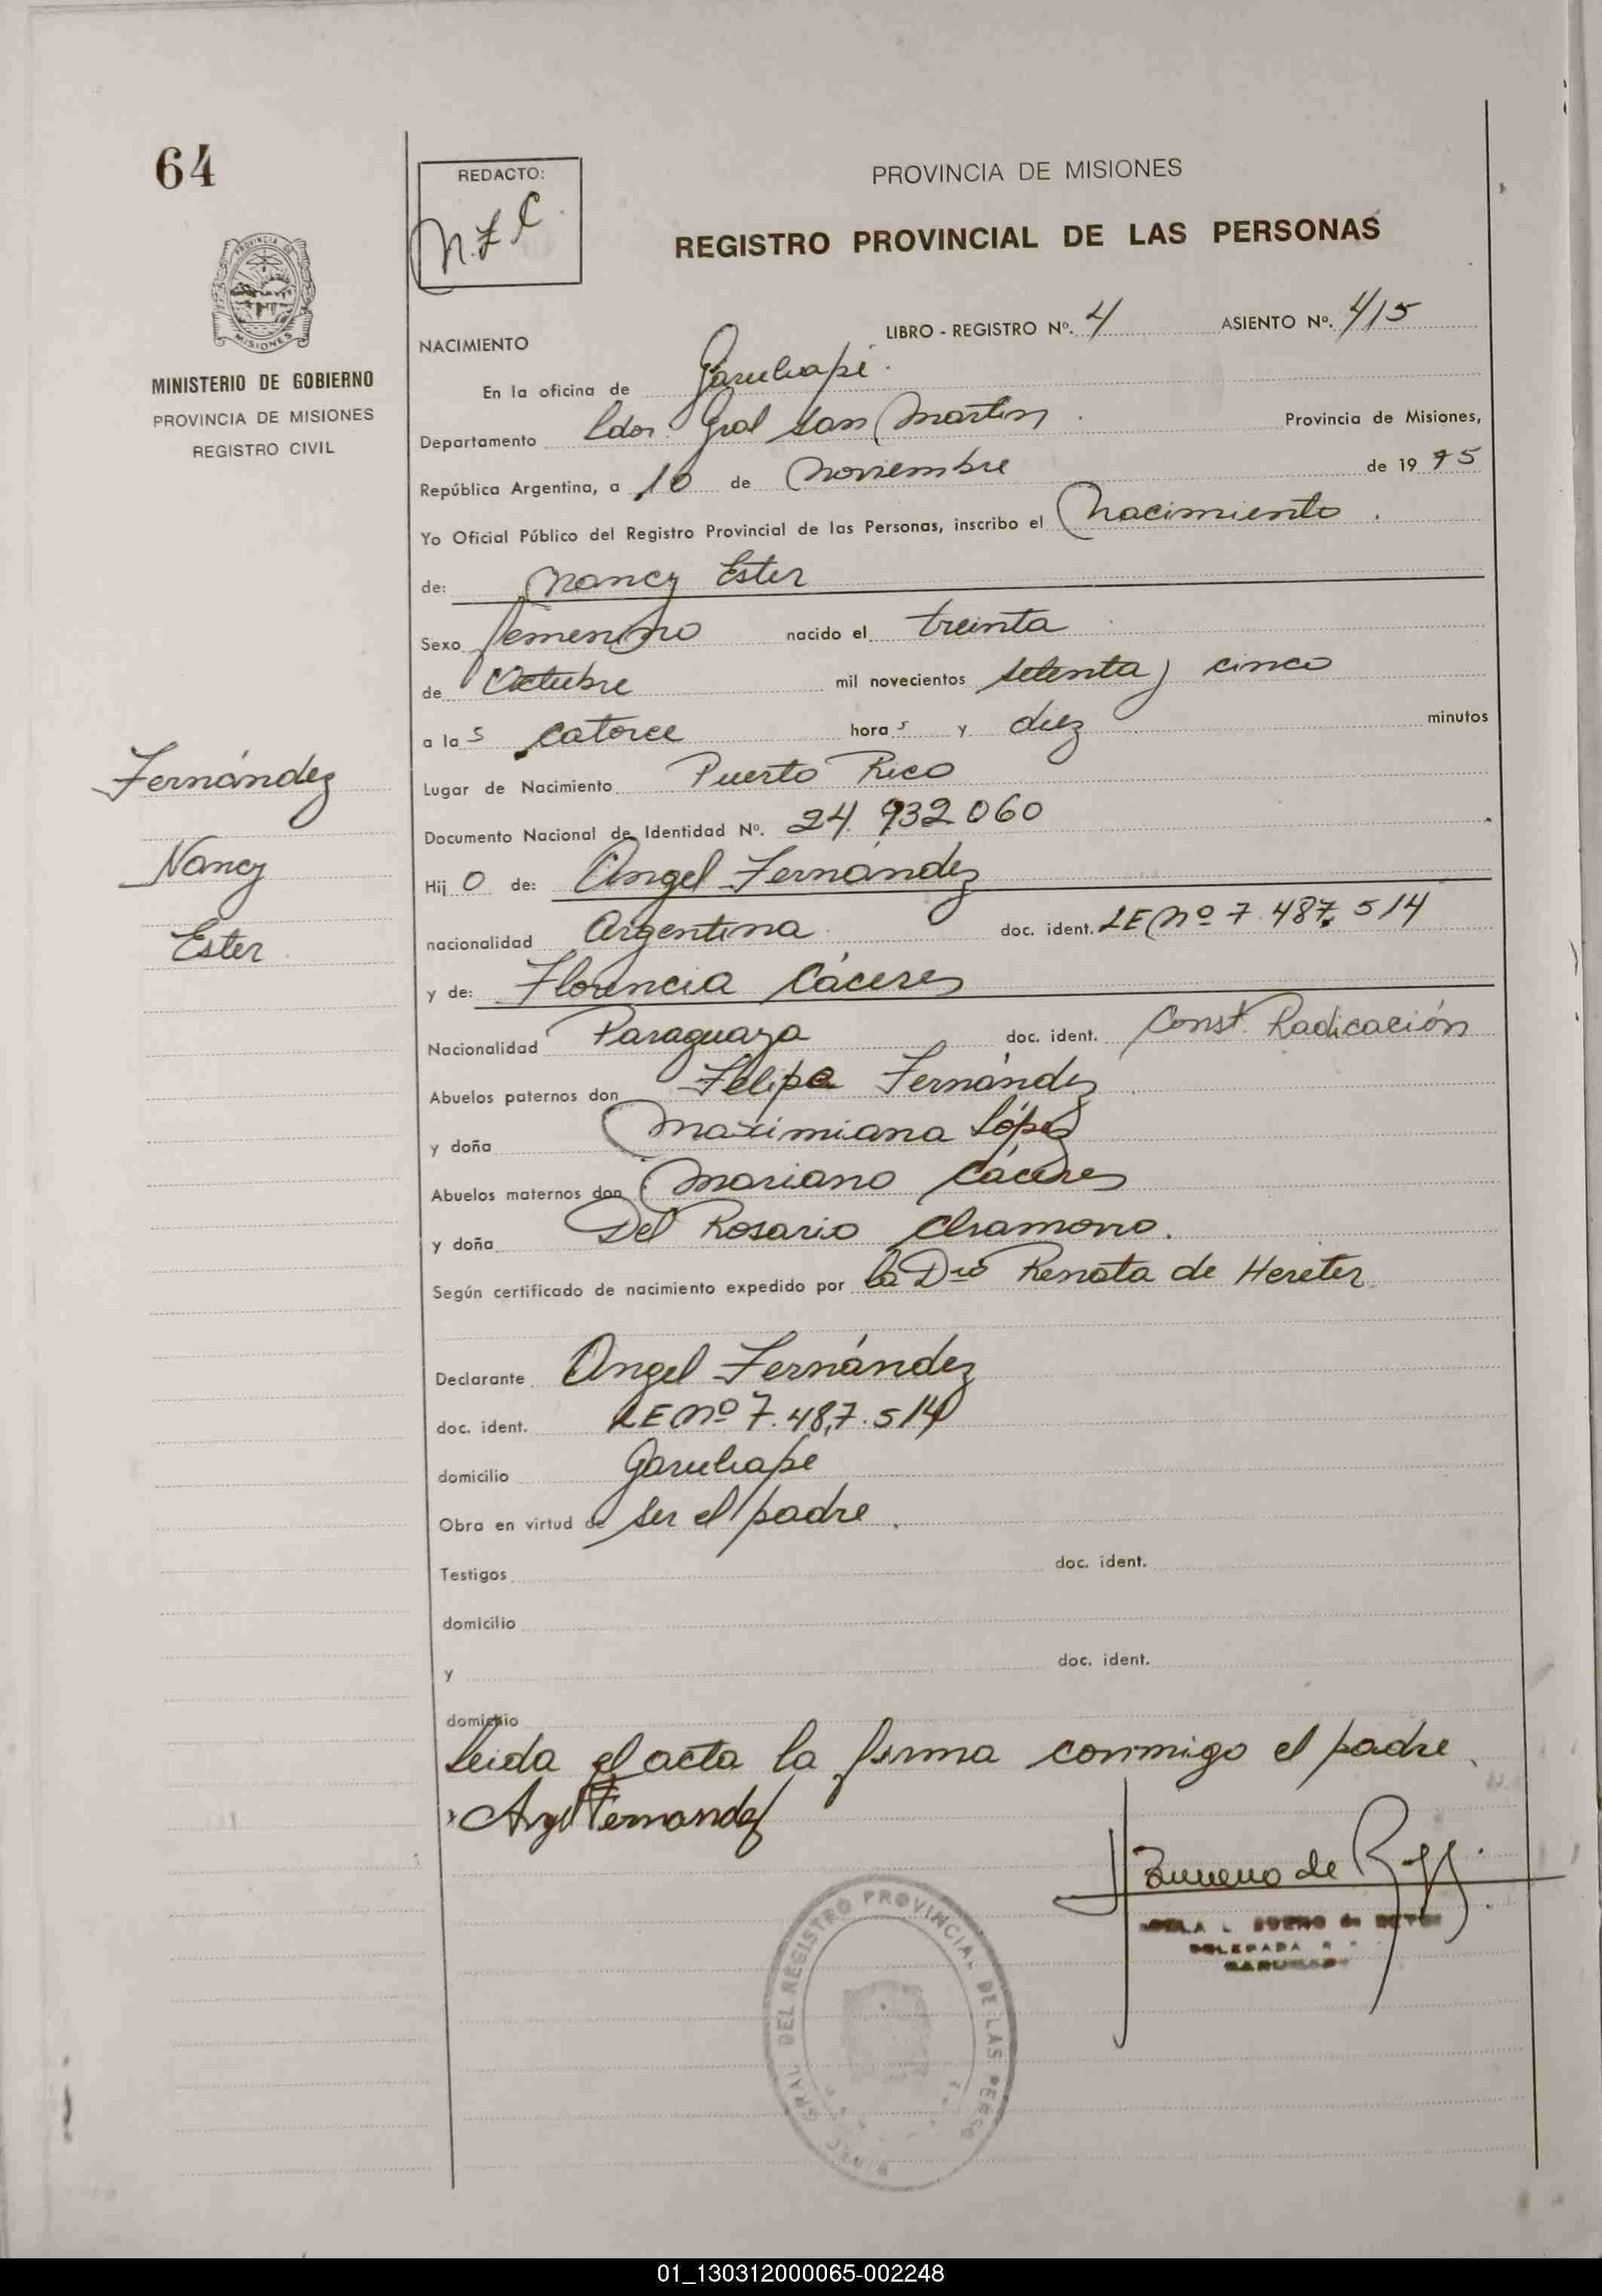 64
REDACTO:
PROVINCIA DE MISIONES
REGISTRO PROVINCIAL DE LAS PERSONAS
PROVINCIA DE MISIONES
MINISTERIO DE GOBIERNO
PROVINCIA DE MISIONES
REGISTRO CIVIL
LIBRO - REGISTRO Nº. 4 ASIENTO Nº. 415
NACIMIENTO
En la oficina de Garuhapé.
Departamento Ldor. Gral San Martin. Provincia de Misiones,
República Argentina, a 10 de Noviembre de 1975
Yo Oficial Público del Registro Provincial de las Personas, inscribo el Nacimiento.
de: Nancy Ester
Sexo femenino nacido el treinta
de Octubre mil novecientos setenta y cinco
a las catorce horas y diez minutos
Fernández
Lugar de Nacimiento Puerto Rico
Documento Nacional de Identidad Nº. 24.932060
Nancy
Hijo de: Angel Fernández
Ester
nacionalidad Argentina doc. ident. LE Nº 7.487.514
y de: Florencia Cáceres
Nacionalidad Paraguaya doc. ident. Const. Radicación
Abuelos paternos don Felipe Fernández
y doña Maximiana López
Abuelos maternos don Mariano Cáceres
y doña Del Rosario Chamorro.
Según certificado de nacimiento expedido por la Dra Renata de Hereter
Declarante Angel Fernández
doc. ident. LE Nº 7.487.514
domicilio Garuhape
Obra en virtud de ser el padre.
Testigos doc. ident.
domicilio
y doc. ident.
domicilio
Leida el acta la firma conmigo el padre
Angel Fernandez
GRAL DEL REGISTRO PROVINCIAL DE LAS PERSO
01_130312000065-002248